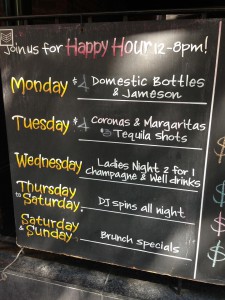 Join us for Happy Hour 12-8pm!
Monday $4 Domestic Bottles
& Jameson
Tuesday $4 Coronas & Margaritas
Tequila Shots
Wednesday Ladies Night 2 for 1
champagne & Well drinks
Thursday
to Saturday DJ spins all night
Saturday
& Sunday Brunch specials !!
$
$
$
$